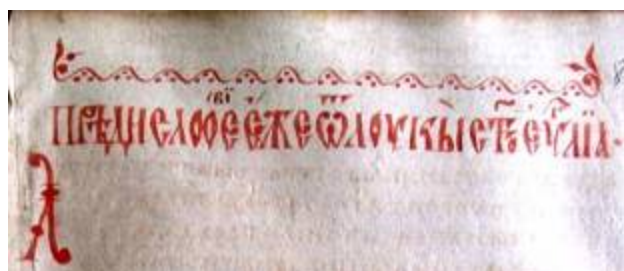 ПРѢДИСЛОⷡ҇ЇЕ ЕЖЕ Ѿ ЛОУКЫ̀ СТ҃Г ЕѴⷢ҇ЛЇА·
А